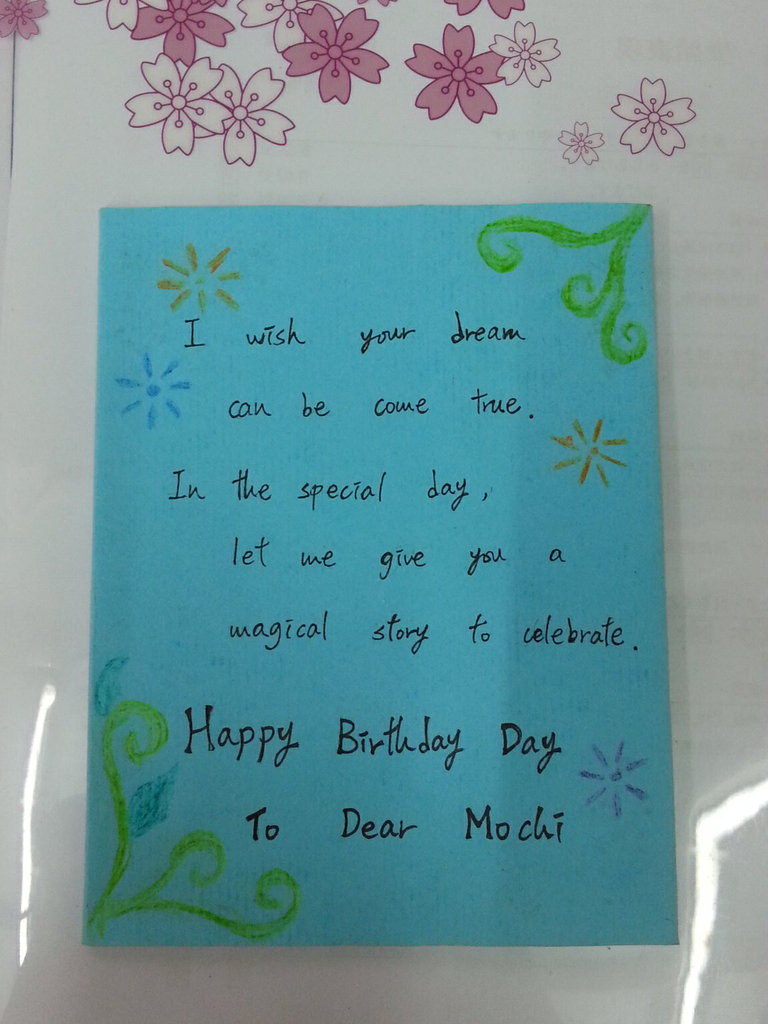 I wish your dream
can be come true.
In the special day,
let me give you a
magical story to celebrate.
Happy Birthday Day
To Dear Mochi